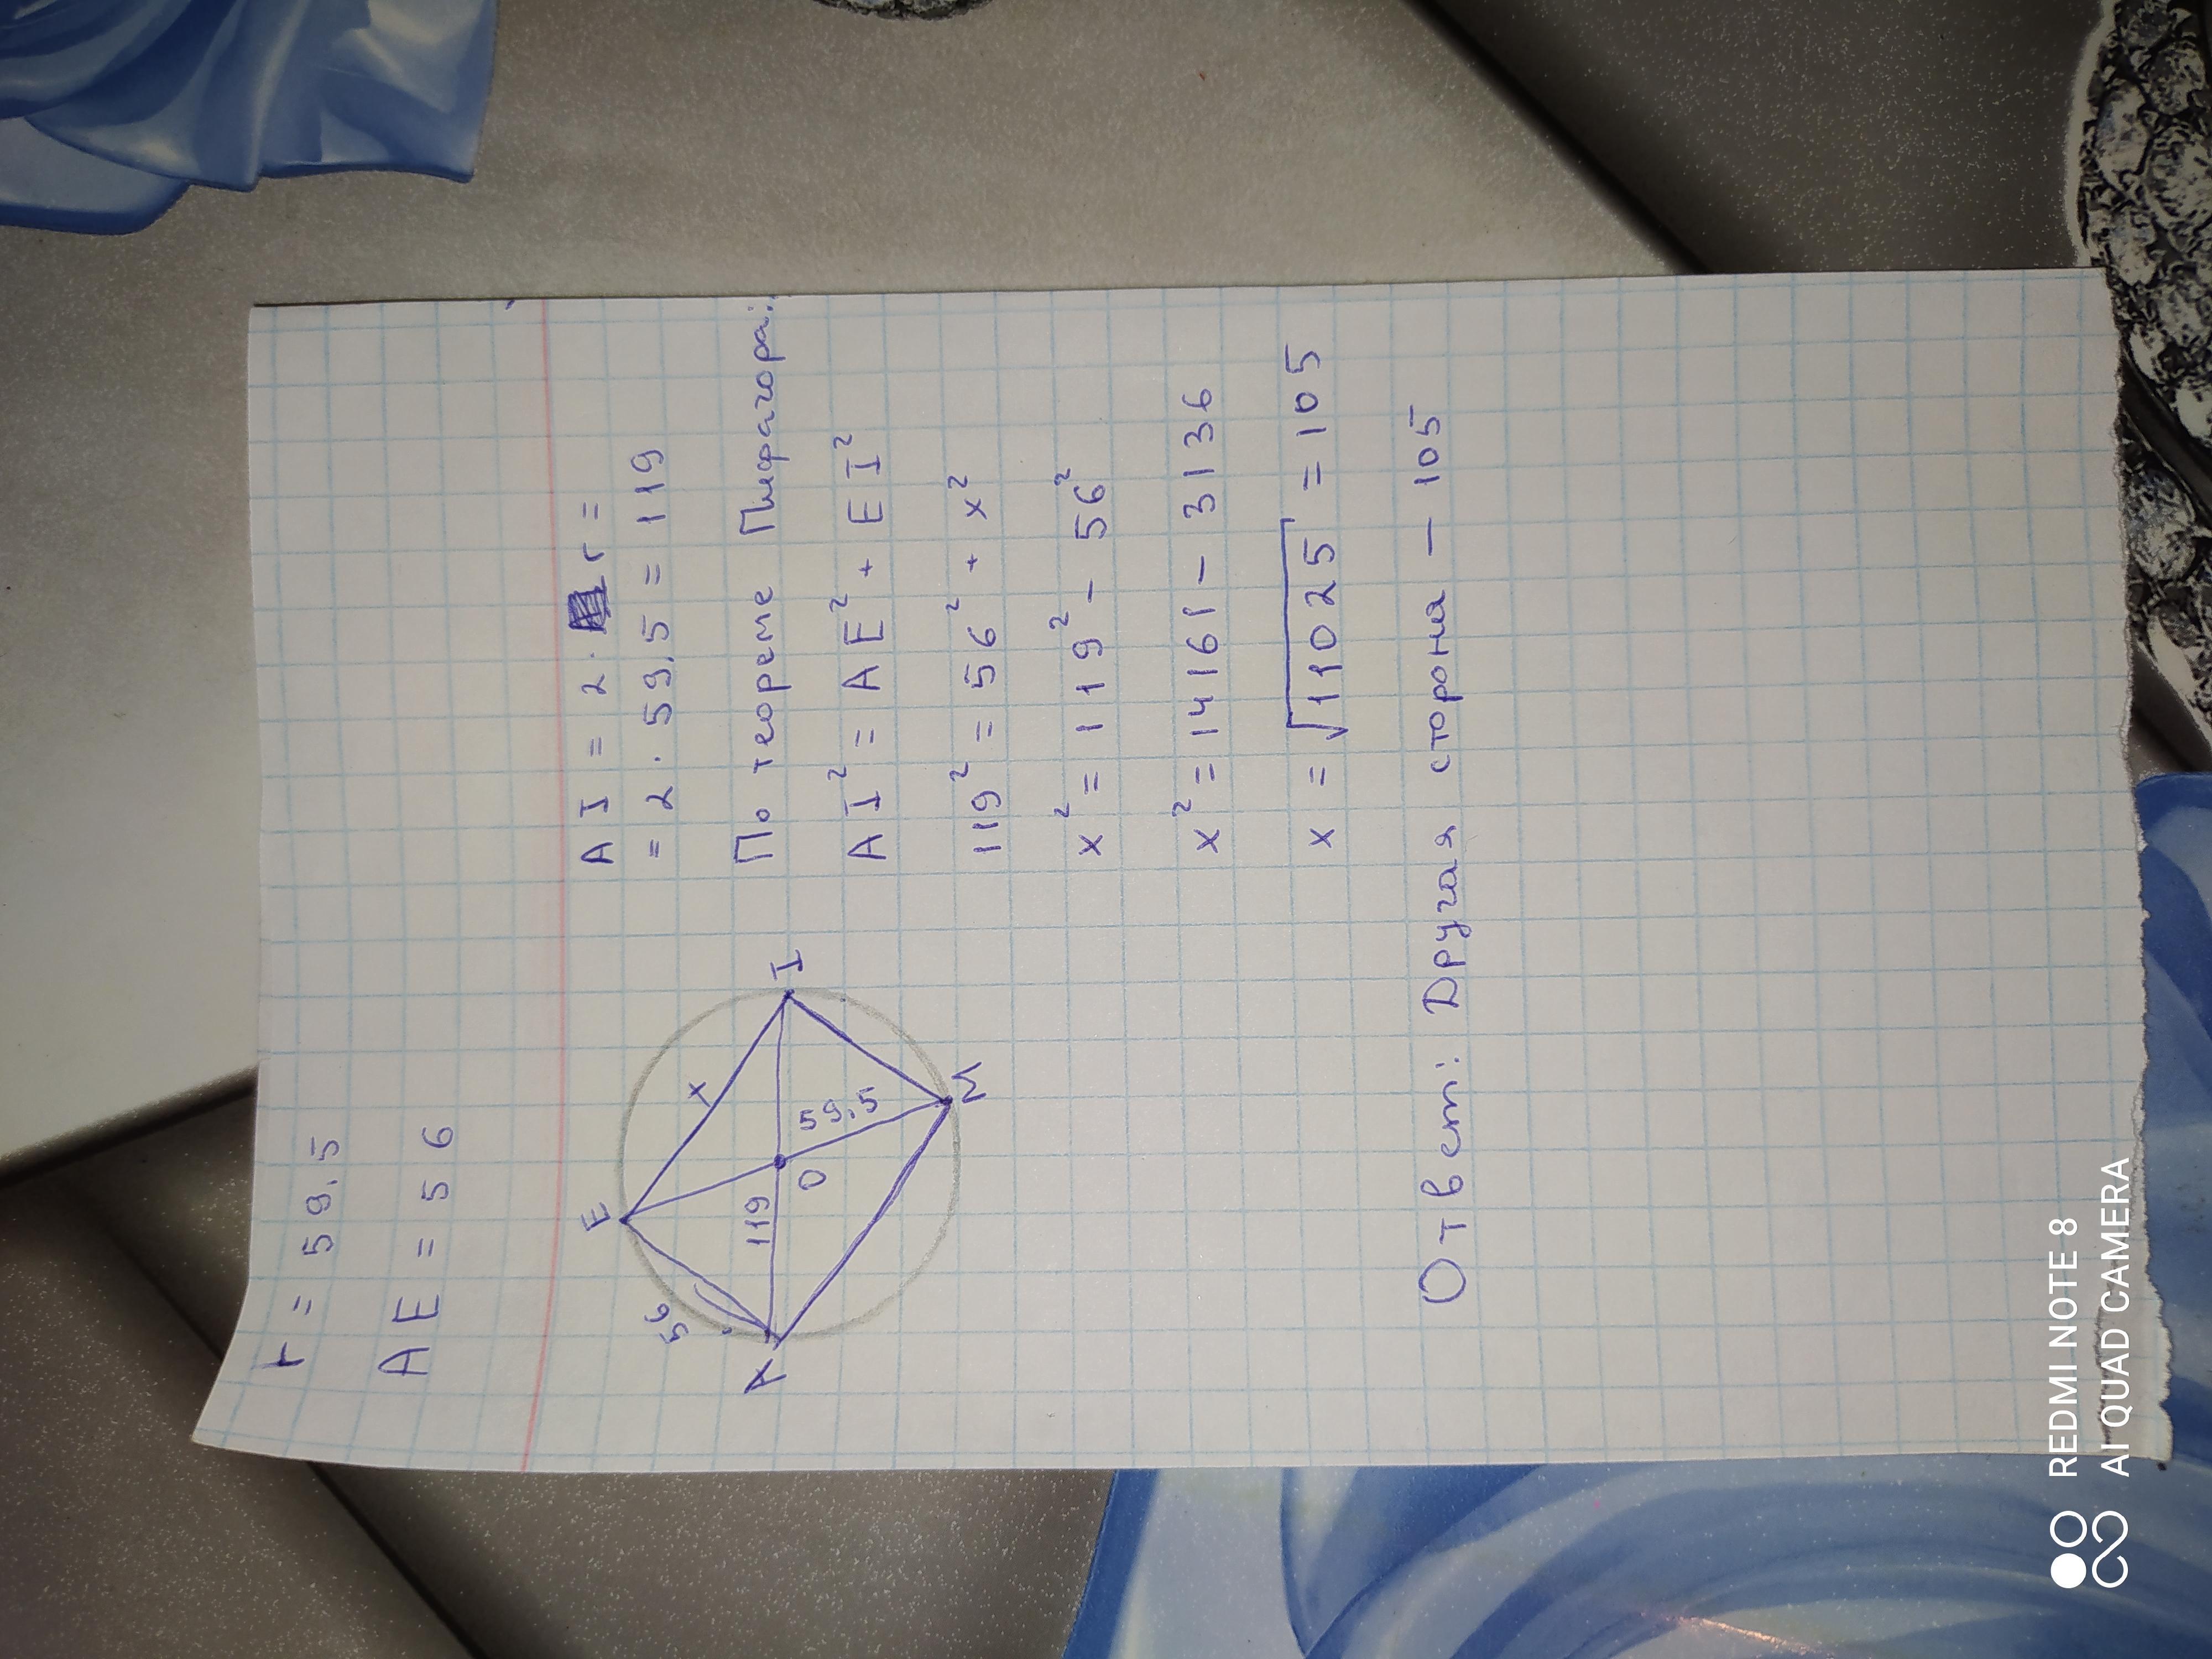 r = 59,5
AE = 56
E
56
x
A
119
O
59,5
I
M
AI = 2 · r =
= 2 · 59,5 = 119
По теореме Пифагора:
AI² = AE² + EI²
119² = 56² + x²
x² = 119² - 56²
x² = 14161 - 3136
x = √11025 = 105
Ответ: Другая сторона - 105
REDMI NOTE 8
AI QUAD CAMERA